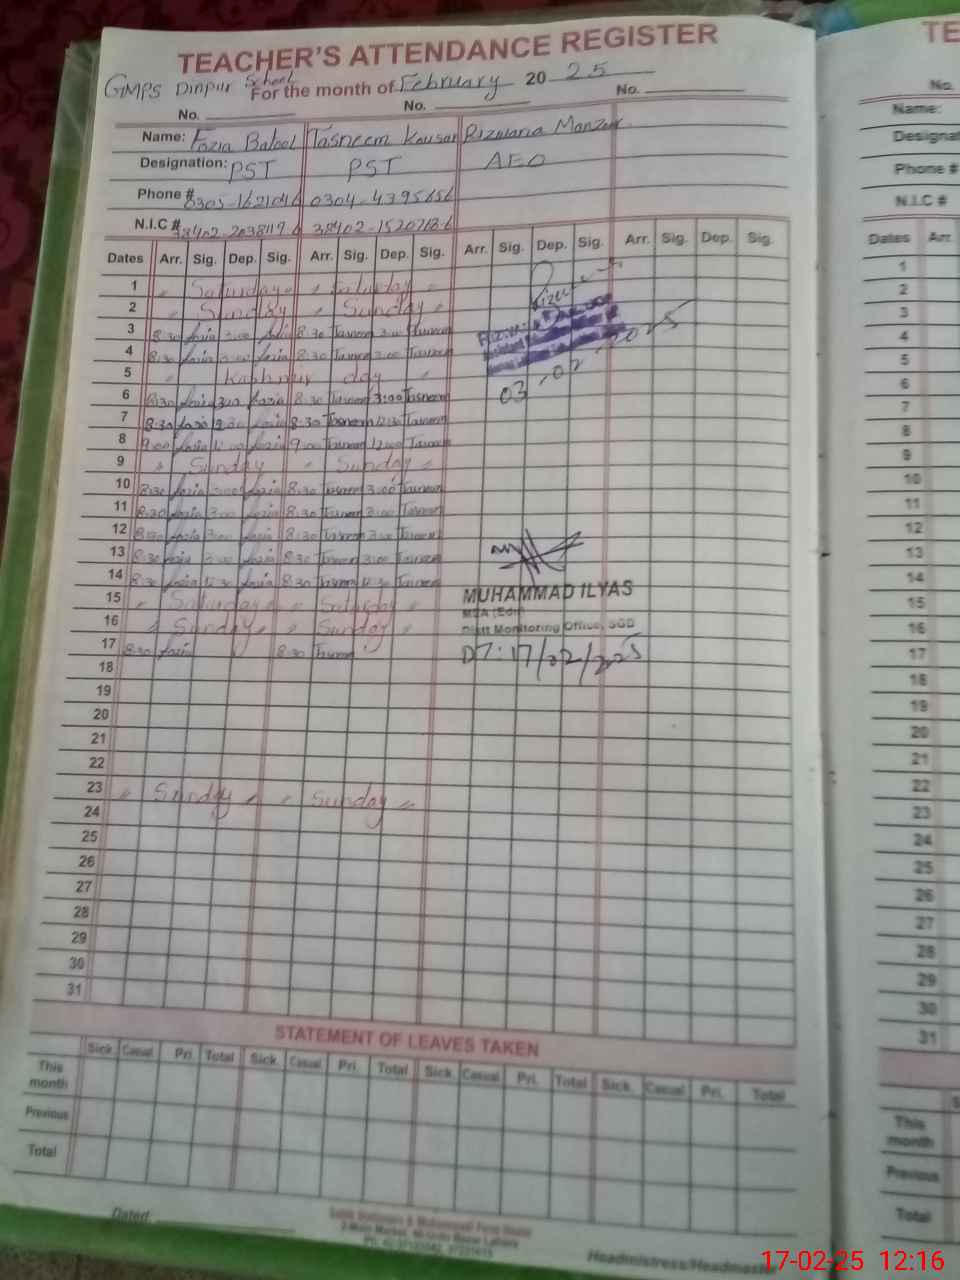 TEACHER'S ATTENDANCE REGISTER
GMPS Dinpur School For the month of February 20 25
No. No. No.
Name: Fozia Batool Tasneem Kousar Rizwana Manzoor
Designation: PST PST AEO
Phone # 0304-4395656
N.I.C # 38402-2038119-6 38402-1520718-6
Dates Arr. Sig. Dep. Sig. Arr. Sig. Dep. Sig. Arr. Sig. Dep. Sig. Arr. Sig. Dep. Sig.
1 " Saturday " " Saturday "
2 " Sunday " Sunday "
3 8:30 Fozia 3:00 Fozia 8:30 Tasneem 3:00 Tasneem
4 8:30 Fozia 3:00 Fozia 8:30 Tasneem 3:00 Tasneem
5 " Kashmir day "
6 8:30 Fozia 3:00 Fozia 8:30 Tasneem 3:00 Tasneem
03-02-2025
7 8:30 Fozia 12:30 Fozia 8:30 Tasneem 12:30 Tasneem
8 9:00 Fozia 12:00 Fozia 9:00 Tasneem 12:00 Tasneem
9 " Sunday " Sunday "
10 8:30 Fozia 3:00 Fozia 8:30 Tasneem 3:00 Tasneem
11 8:30 Fozia 3:00 Fozia 8:30 Tasneem 3:00 Tasneem
12 8:30 Fozia 3:00 Fozia 8:30 Tasneem 3:00 Tasneem
13 8:30 Fozia 3:00 Fozia 8:30 Tasneem 3:00 Tasneem
14 8:30 Fozia 12:30 Fozia 8:30 Tasneem 12:30 Tasneem
15 " Saturday " " Saturday "
MUHAMMAD ILYAS
MEA (Edu)
16 " Sunday " " Sunday "
Distt Monitoring Office, SGD
17 8:30 Fozia 8:30 Tasneem
DT: 17/02/2025
18
19
20
21
22
23 " Sunday " " Sunday "
24
25
26
27
28
29
30
31
STATEMENT OF LEAVES TAKEN
Sick Casual Pri. Total Sick. Casual Pri. Total Sick. Casual Pri. Total Sick. Casual Pri. Total
This month
Previous
Total
Dated:
Headmistress/Headmaster
TE
No.
Name:
Designat
Phone #
N.I.C #
Dates Arr
1
2
3
4
5
6
7
8
9
10
11
12
13
14
15
16
17
18
19
20
21
22
23
24
25
26
27
28
29
30
31
This month
Previous
Total
17-02-25 12:16